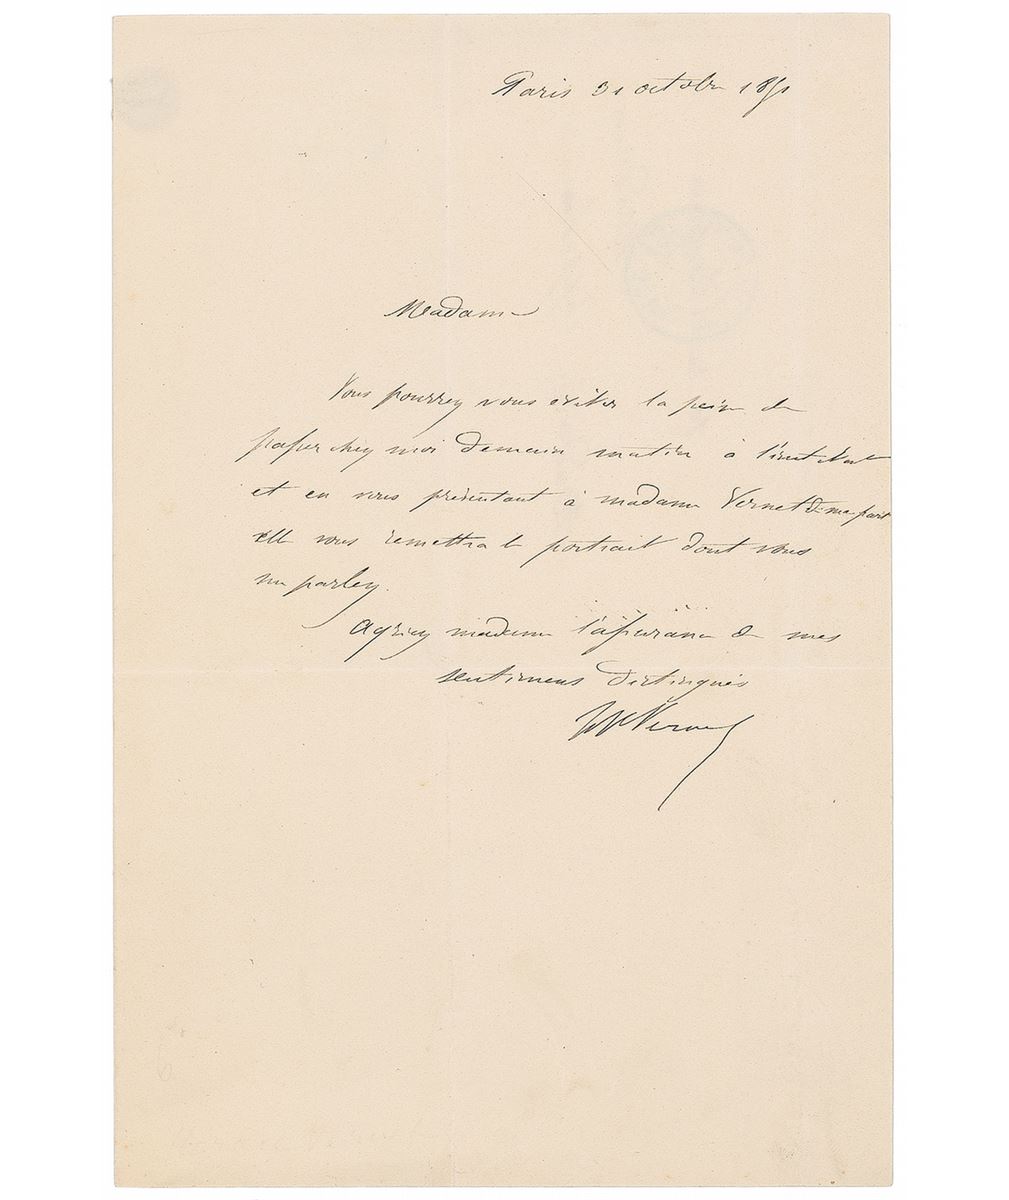 Paris 31 octobre 1851
Madame
Vous pourrez vous éviter la peine de
passer chez moi demain matin à l'institut
et en vous présentant à madame Vernet de ma part
elle vous remettra le portrait dont vous
me parlez.
agréez madame l'assurance de mes
sentimens distingués
H Vernet